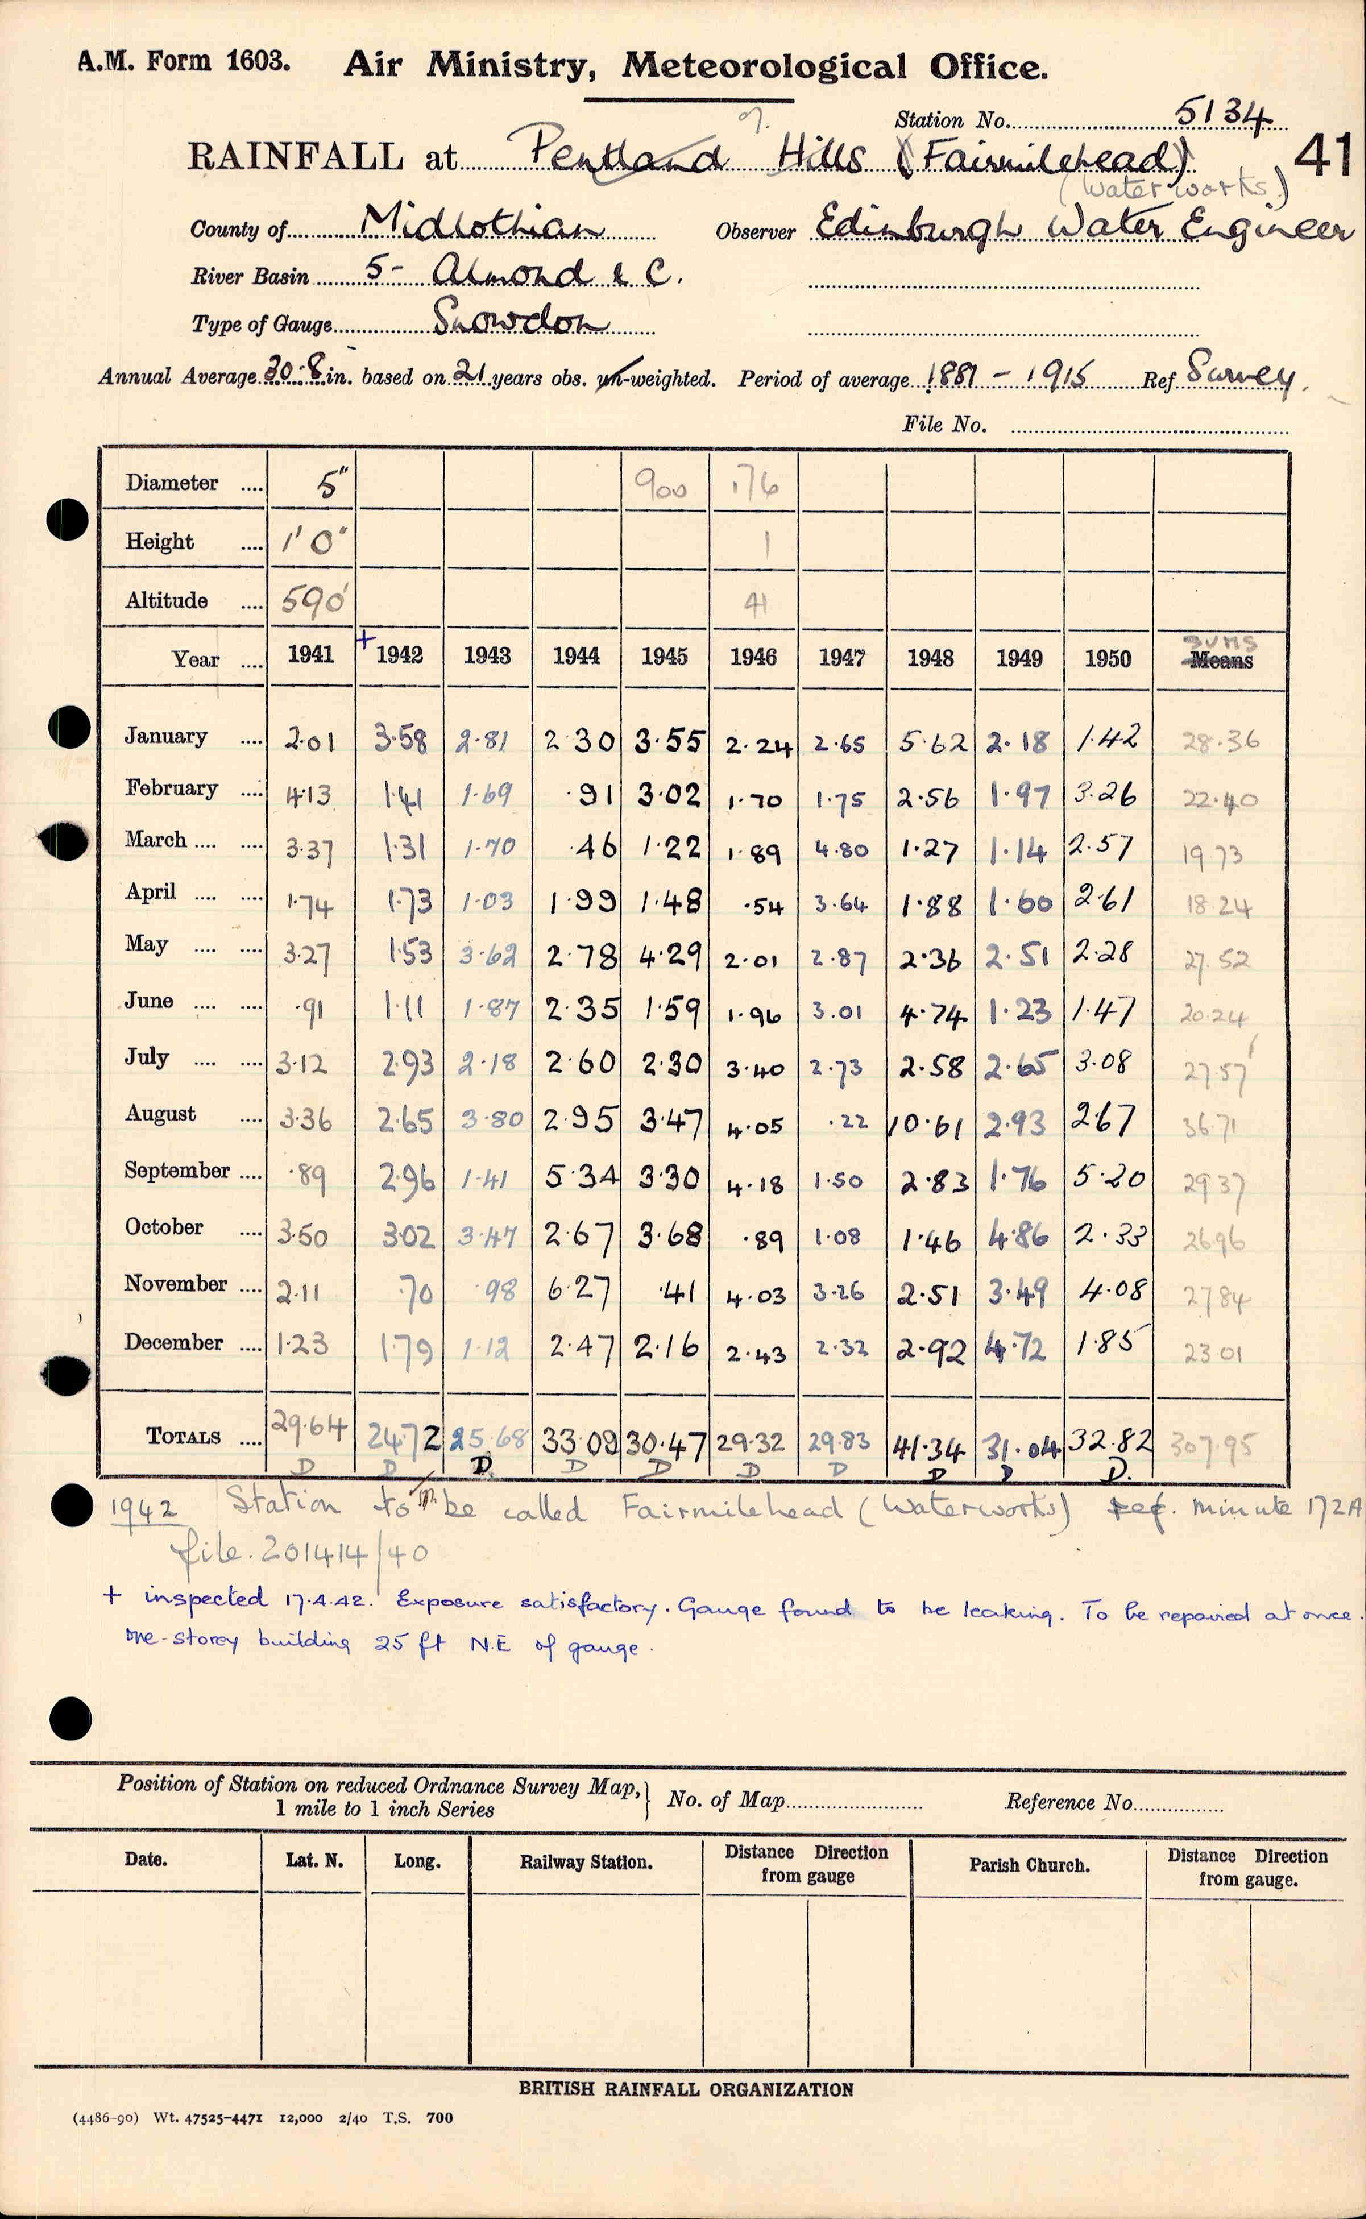 A.M. Form 1603. Air Ministry, Meteorological Office.
Station No. 5134
RAINFALL at Pentland Hills (Fairmilehead) 41
(Waterworks)
County of Midlothian Observer Edinburgh Water Engineer
River Basin 5- Almond & C.
Type of Gauge Snowdon
Annual Average 30.8 in. based on 21 years obs. un-weighted. Period of average 1881 - 1915 Ref Survey.
File No.
Diameter .... 5" 900 .176
Height .... 1' 0" 1
Altitude .... 590' 41
SUMS
Year .... 1941 + 1942 1943 1944 1945 1946 1947 1948 1949 1950 Means
January .... 2.01 3.58 2.81 2.30 3.55 2.24 2.65 5.62 2.18 1.42 28.36
February .... 4.13 1.41 1.69 .91 3.02 1.70 1.75 2.56 1.97 3.26 22.40
March .... .... 3.37 1.31 1.70 .46 1.22 1.89 4.80 1.27 1.14 2.57 19.73
April .... .... 1.74 1.73 1.03 1.99 1.48 .54 3.64 1.88 1.60 2.61 18.24
May .... .... 3.27 1.53 3.62 2.78 4.29 2.01 2.87 2.36 2.51 2.28 27.52
June .... .... .91 1.11 1.87 2.35 1.59 1.96 3.01 4.74 1.23 1.47 20.24
July .... .... 3.12 2.93 2.18 2.60 2.30 3.40 2.73 2.58 2.65 3.08 27.57
August .... 3.36 2.65 3.80 2.95 3.47 4.05 .22 10.61 2.93 2.67 36.71
September .... .89 2.96 1.41 5.34 3.30 4.18 1.50 2.83 1.76 5.20 29.37
October .... 3.50 3.02 3.47 2.67 3.68 .89 1.08 1.46 4.86 2.33 26.96
November .... 2.11 .70 .98 6.27 .41 4.03 3.26 2.51 3.49 4.08 27.84
December .... 1.23 1.79 1.12 2.47 2.16 2.43 2.32 2.92 4.72 1.85 23.01
TOTALS .... 29.64 24.72 25.68 33.09 30.47 29.32 29.83 41.34 31.04 32.82 307.95
D D D. D D D D D D D.
1942 Station to be called Fairmilehead (Waterworks) ref. minute 172A
file. 201414/40
+ inspected 17.4.42. Exposure satisfactory. Gauge found to be leaking. To be repaired at once.
One-storey building 25 ft N.E of gauge.
Position of Station on reduced Ordnance Survey Map, } No. of Map Reference No.
1 mile to 1 inch Series
Date. Lat. N. Long. Railway Station. Distance Direction from gauge Parish Church. Distance Direction from gauge.
BRITISH RAINFALL ORGANIZATION
(4486-90) Wt. 47525-4471 12,000 2/40 T.S. 700